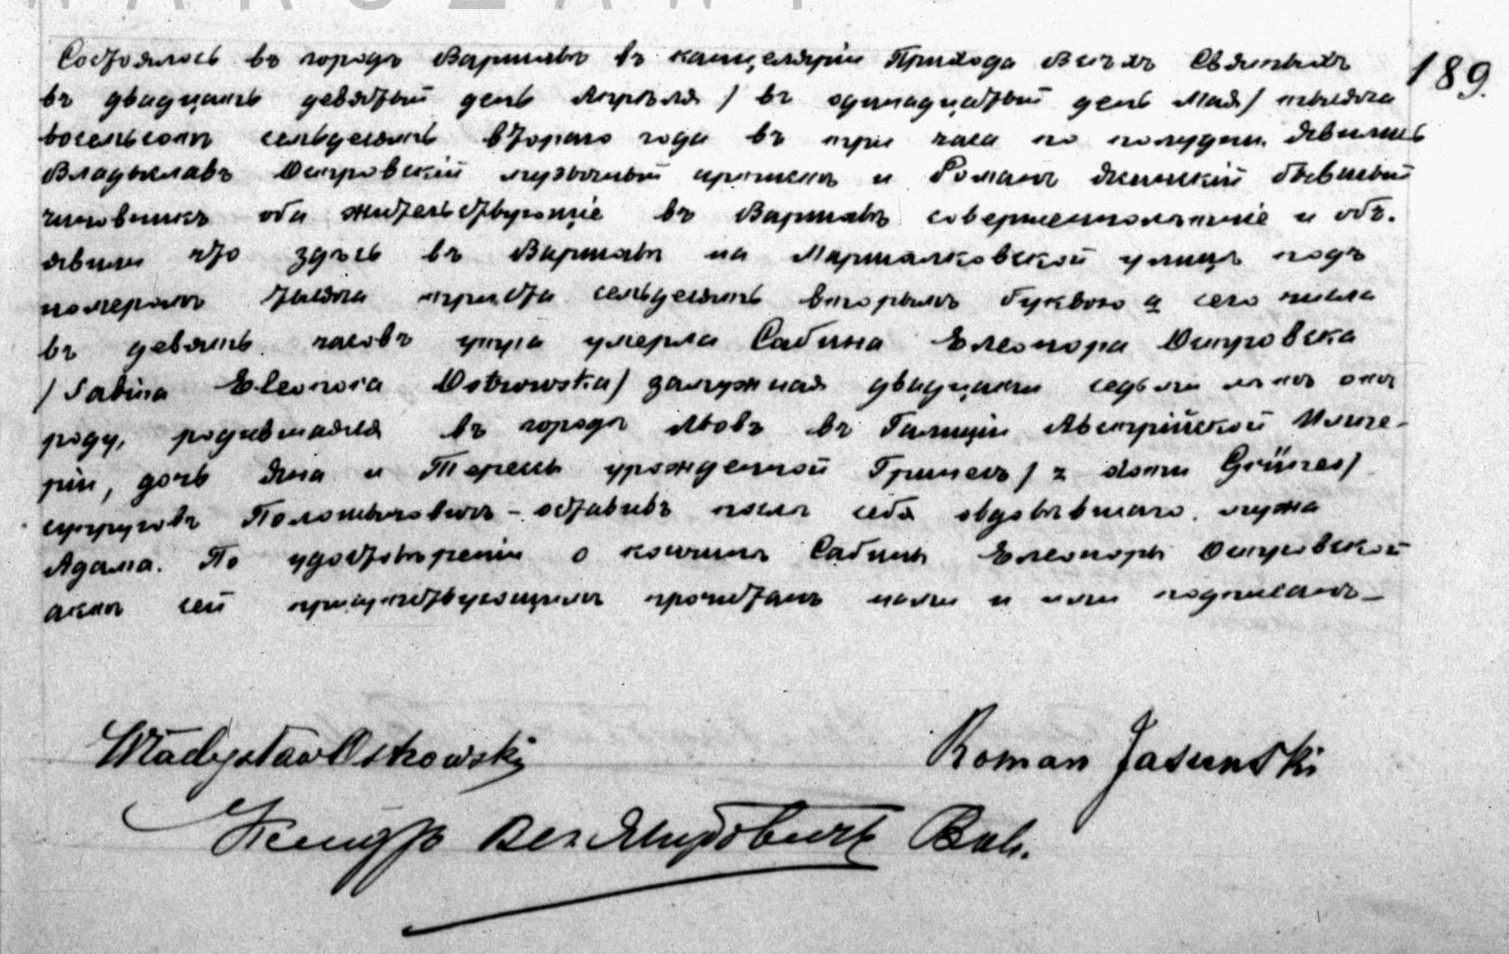 WARSZAWY
Состоялось въ городѣ Варшавѣ въ канцеляріи Прихода Всѣхъ Святыхъ
189.
въ двадцать девятый день Апрѣля / въ одинадцатый день Мая / тысяча
восемьсотъ семьдесятъ втораго года въ три часа по полудни. Явились
Владыславъ Островскій музычный артистъ и Романъ Ясинскій бывшый
чиновникъ оба жительствующіе въ Варшавѣ совершеннолѣтніе и объ-
явили что здѣсь въ Варшавѣ на Маршалковской улицѣ подъ
номеромъ тысяча триста семьдесятъ вторымъ буквою а сего числа
въ девять часовъ утра умерла Сабина Елеонора Островска
/Sabina Eleonora Ostrowska/ замужная двадцати седьми лѣтъ отъ
роду, родившаяся въ городѣ Львовъ въ Галиціи Австрійской Импе-
ріи, дочь Яна и Терезы урожденной /z domu Grünes/
супруговъ - оставивъ послѣ себя овдовѣвшаго мужа
Адама. По удостовѣреніи о кончинѣ Сабины Елеоноры Островской
актъ сей присутствующимъ прочитанъ нами и ими подписанъ_
Władysław Ostrowski Roman Jasinski